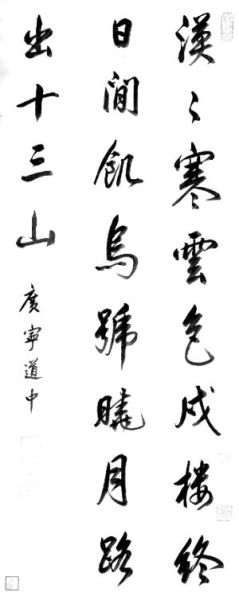 漠々寒雲色戍樓終
日閒飢烏號曉月路
出十三山
廣寧道中